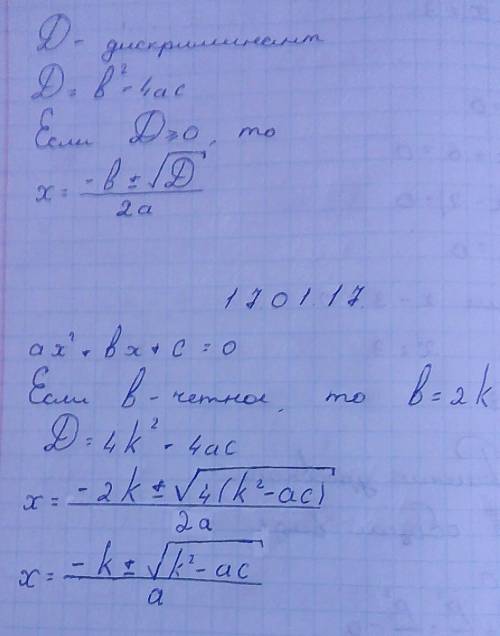 D - дискриминант
D = b² - 4ac
Если D ≥ 0, то
x = (-b ± √D) / 2a
17.01.17.
ax² + bx + c = 0
Если b - четное, то b = 2k
D = 4k² - 4ac
x = (-2k ± √(4(k² - ac))) / 2a
x = (-k ± √(k² - ac)) / a